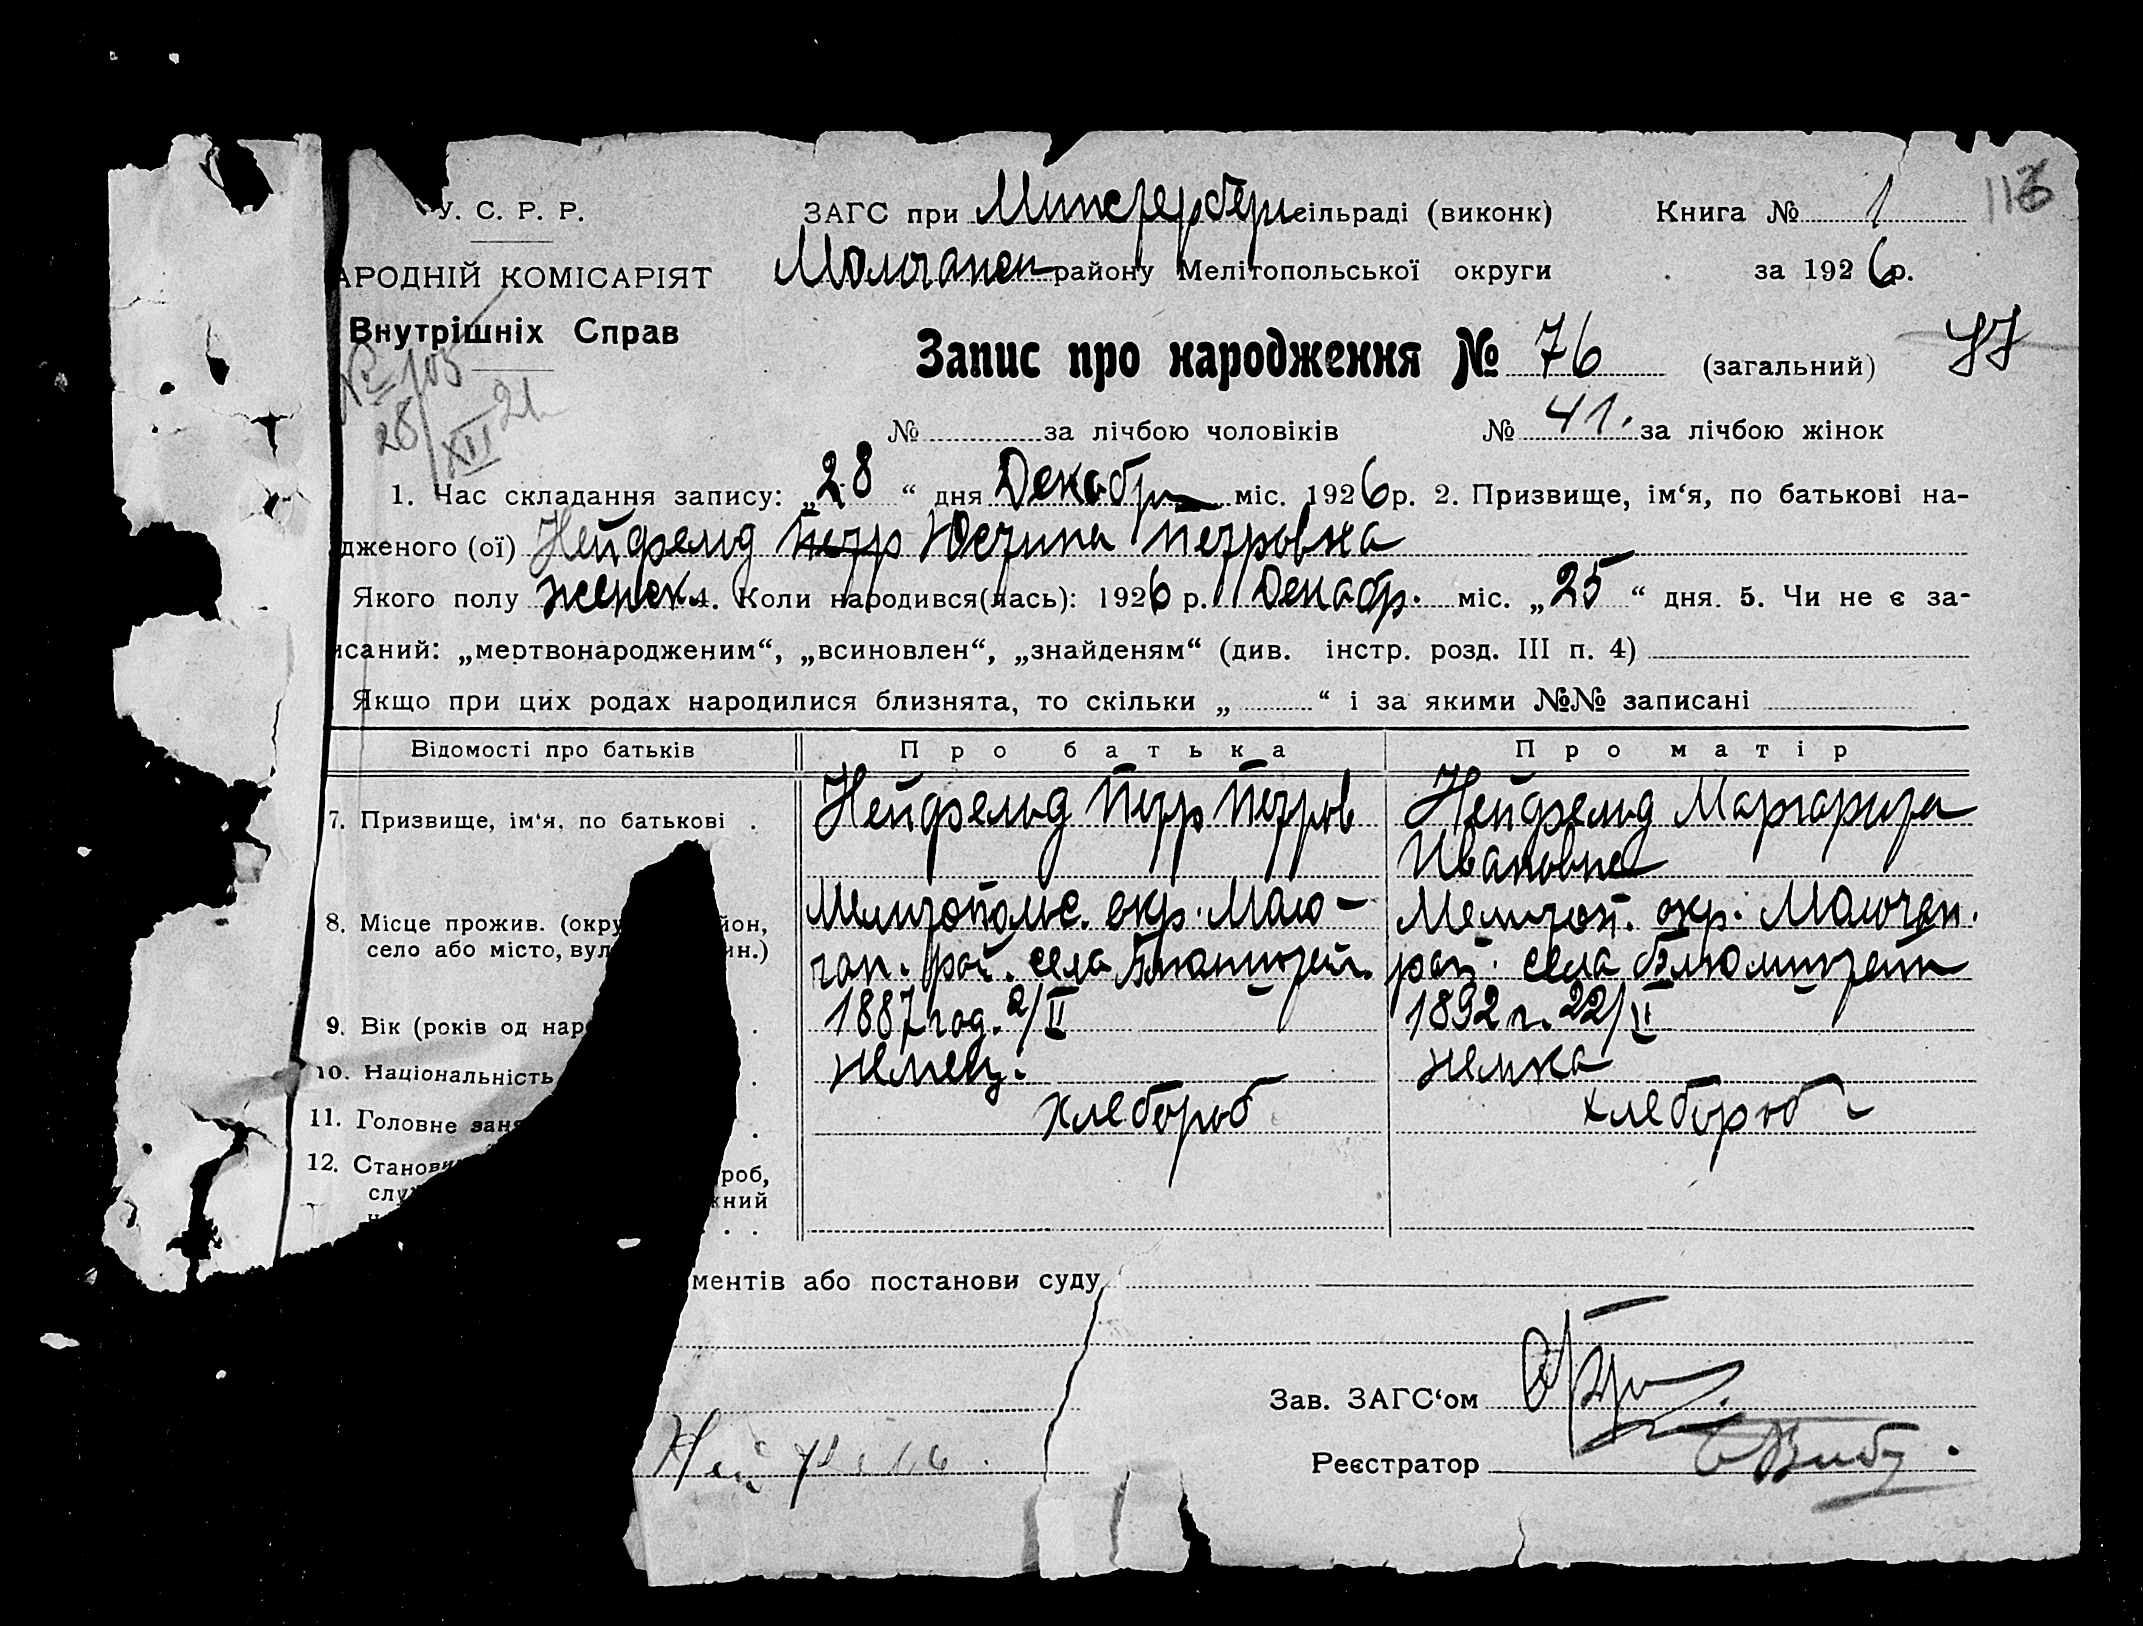 У. С. Р. Р.
АРОДНІЙ КОМІСАРІЯТ
Внутрішніх Справ
№ 105
28/XII 26
ЗАГС при Минстерберг сільраді (виконк)
Молочанск району Мелітопольської округи
Книга № 1
за 1926 р.
113
Запис про народження № 76 (загальний) 77
№ за лічбою чоловіків № 41. за лічбою жінок
1. Час складання запису: „28“ дня Декабря міс. 1926 р. 2. Призвище, ім‘я, по батькові на-
дженого (ої) Нейфельд Петр Юстина Петровна
Якого полу женск. 4. Коли народився(лась): 1926 р. Декабр. міс. „25“ дня. 5. Чи не є за-
исаний: „мертвонародженим“, „всиновлен“, „знайденям“ (див. інстр. розд. III п. 4)
Якщо при цих родах народилися близнята, то скільки „ “ і за якими №№ записані
Відомості про батьків Про батька Про матір
7. Призвище, ім‘я, по батькові . Нейфельд Петр Петров Нейфельд Маргарита
Ивановна
8. Місце прожив. (окру йон, Мелитопольс. окр. Моло- Мелитоп. окр. Молочан.
село або місто, вул ин.) чан. рай. села рай. села Блюмштейн
9. Вік (років од нар . 1887 год. 2/II 1892 г. 22/II
10. Національність . немец. немка
11. Головне заня . хлебороб хлебороб
12. Станови роб,
слу жний
. .
ментів або постанови суду
Зав. ЗАГС‘ом
Нейфель
Реєстратор